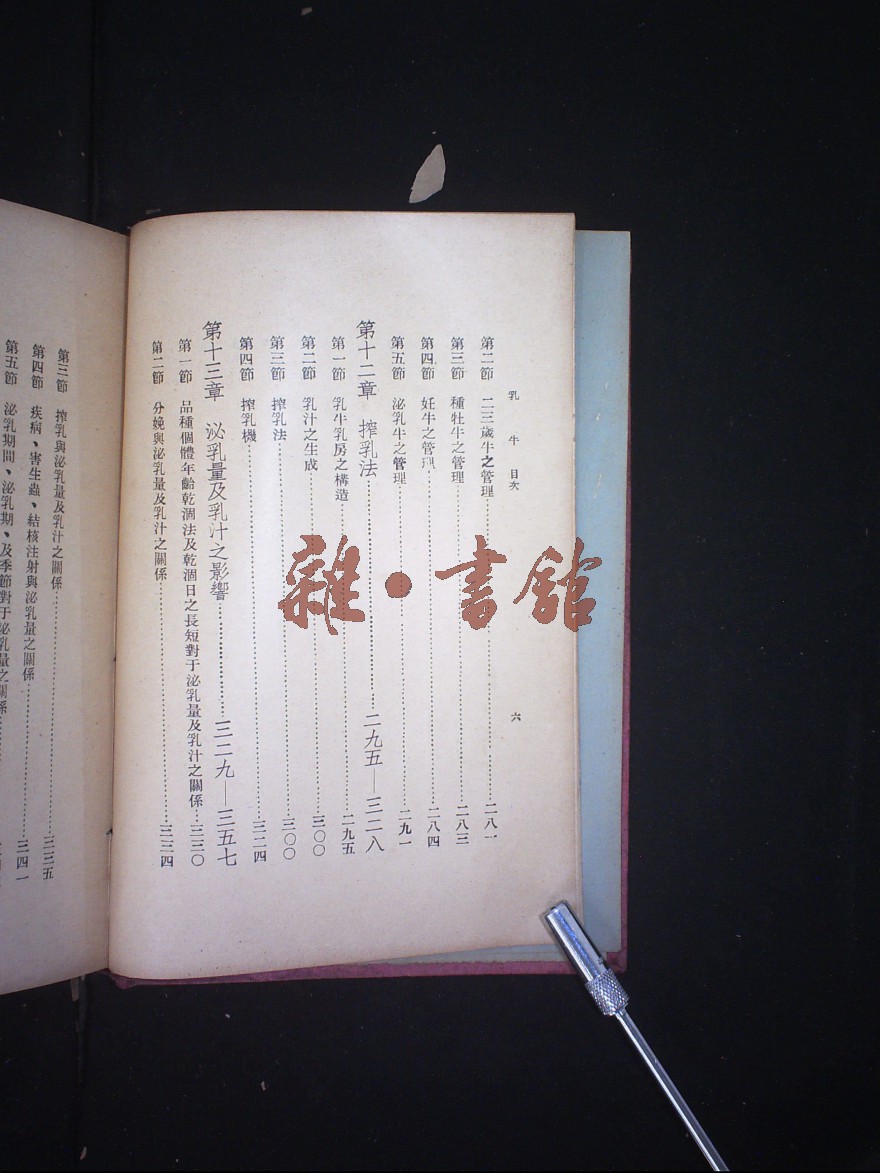 乳牛目次
六
第二節 二三歲牛之管理 二八一
第三節 種牡牛之管理 二八三
第四節 妊牛之管理 二八四
第五節 泌乳牛之管理 二九一
第十二章 搾乳法 二九五—三二八
第一節 乳牛乳房之構造 二九五
第二節 乳汁之生成 三〇〇
第三節 搾乳法 三〇〇
第四節 搾乳機 三二四
第十三章 泌乳量及乳汁之影響 三二九—三五七
第一節 品種個體年齡乾涸法及乾涸日之長短對于泌乳量及乳汁之關係 三三〇
第二節 分娩與泌乳量及乳汁之關係 三三四
第三節 搾乳與泌乳量及乳汁之關係 三三五
第四節 疾病、害生蟲、結核注射與泌乳量之關係 三四一
第五節 泌乳期間、泌乳期、及季節對于泌乳量之關係
雜·書館